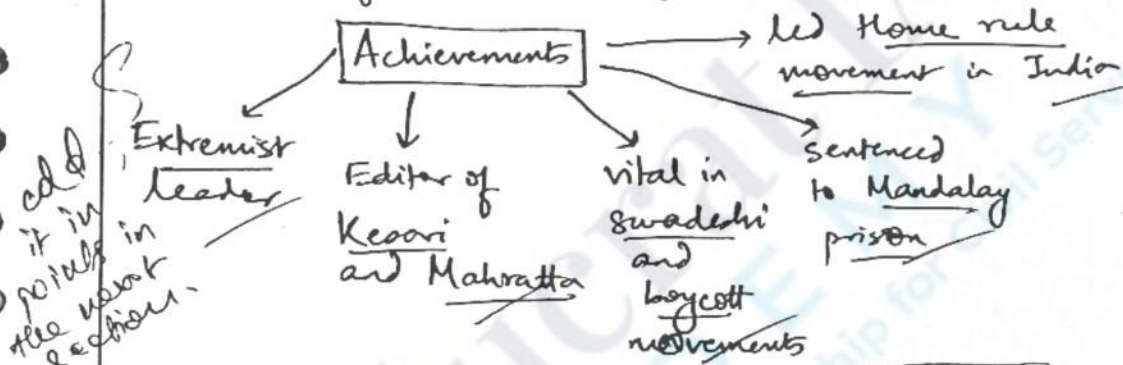 Achievements
led Home rule
movement in India
Extremist
leader
Editor of
Kesari
and Mahratta
vital in
swadeshi
and
boycott
movements
sentenced
to Mandalay
prison
add
it in
points in
the next
section.